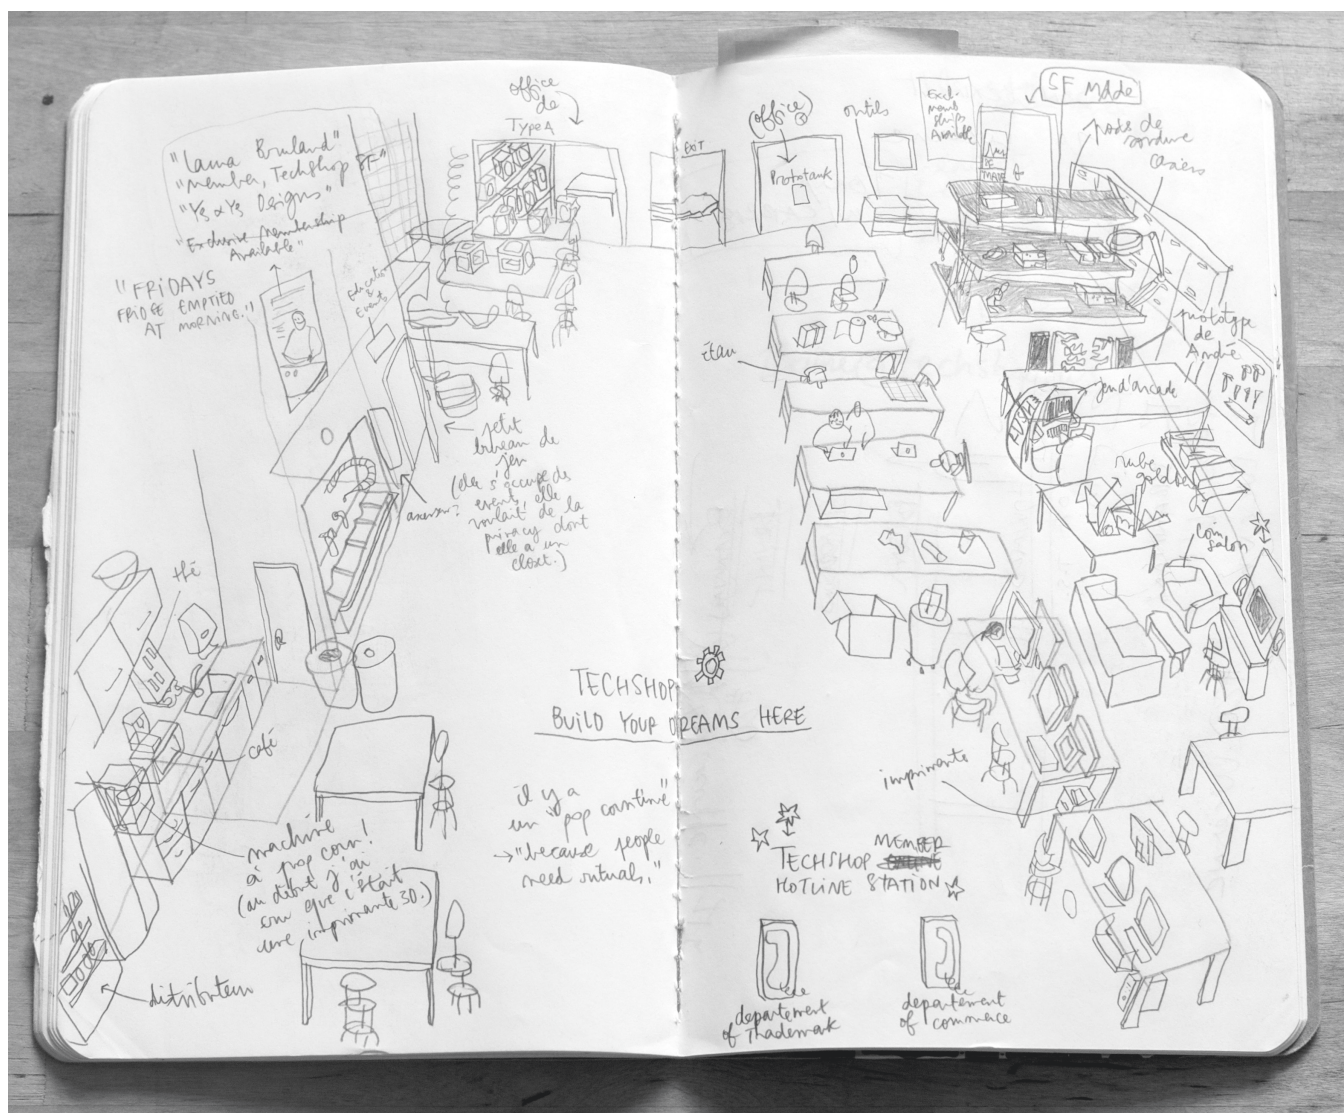 office
de
Type A
"Laura Bruland"
"Member, TechShop SF"
"Y3 x Y3 Designs"
"Exclusive Membership
Available"
"FRiDAYS
FRIDGE EMPTIED
AT MORNING."
Education
&
Events
petit
bureau de
jen
(elle s'occupe des
event, elle
voulait de la
privacy dont
elle a un
closet.)
ascenseur?
thé
café
machine
à pop corn!
(au début j'ai
cru que c'était
une imprimante 3D.)
distributeur
TECHSHOP
BUILD YOUR DREAMS HERE
il y a
un "pop corntime"
→ "because people
need rituals."
EXiT
(office)
Prototank
outils
Excl.
memb
ships
Available
SF MADE
SF
MADE
pods de
soudure
casiers
étau
prototype
de
André
jeu d'arcade
rube
goldberg
coin
salon
imprimante
TECHSHOP MEMBER
HOTLINE STATION
departement
of Trademark
departement
of commerce